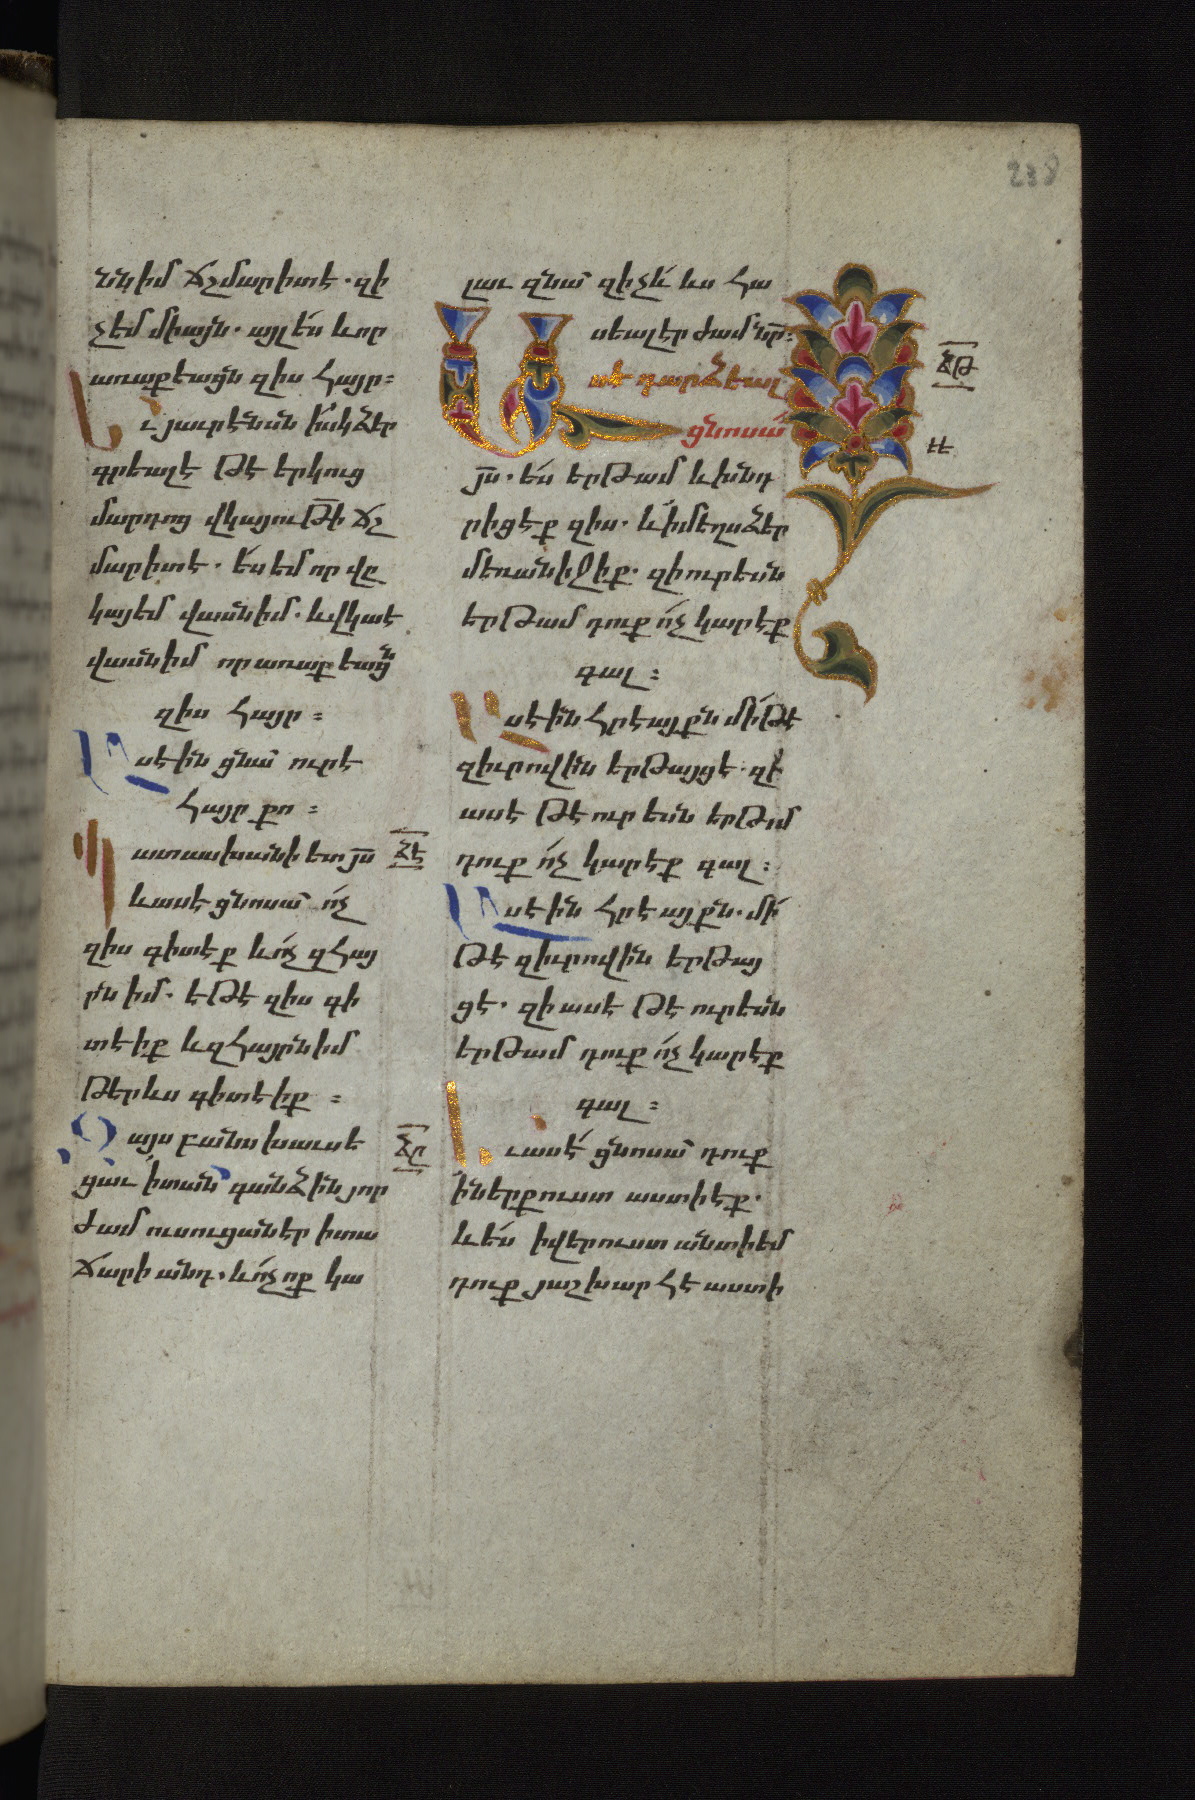 238
նն իմ ճշմարիտ է. զի
չեմ միայն. այլ ես և որ
առաքեացն զիս հայր։
Եւ յաւրէնսն իսկ ձեր
գրեալ է թէ երկուց
մարդոց վկայութի ճշ
մարիտ է. ես եմ որ վը
կայեմ վասն իմ. և վկաէ
վասն իմ որ առաքեացն
զիս հայր։
Ասէին ցնա ուր է
հայր քո։
Պատասխանի ետ յս ՃԷ
և ասէ ցնոսա ոչ
զիս գիտէք և ոչ զհայ
րն իմ. եթէ զիս գի
տէիք և զհայրն իմ
թերևս գիտէիք։
Զայս բանս խաւսե ՃԸ
ցաւ ի տան գանձին յոր
ժամ ուսուցանէր ի տա
ճարի անդ. և ոչ ոք կա
լաւ զնա զի չև ևս հա
սեալ էր ժամ նր։
Ասէ դարձեալ ՃԹ
ցնոսա
յս. ես երթամ և խնդ
րիցէք զիս. և ի մեղս ձեր
մեռանիջիք. զի ուր եսն
երթամ դուք ոչ կարէք
գալ։
Ասէին հրեայքն մի թէ
զիւրովին երթայցէ. զի
ասէ թէ ուր եսն երթմ
դուք ոչ կարէք գալ։
Ասէին հրեայքն. մի
թէ զիւրովին երթայ
ցէ. զի ասէ թէ ուր եսն
երթամ դուք ոչ կարէք
գալ։
Եւ ասէ ցնոսա դուք
ի ներքուստ աստի էք.
և ես ի վերուստ անտի եմ
դուք յաշխարհէ աստի